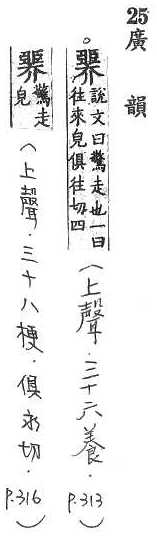 25廣韻
。臩說文曰驚走也一曰
往來皃俱往切四
（上聲．三十六養．P.313）
臩驚走
皃
（上聲．三十八梗．俱永切．P.316）